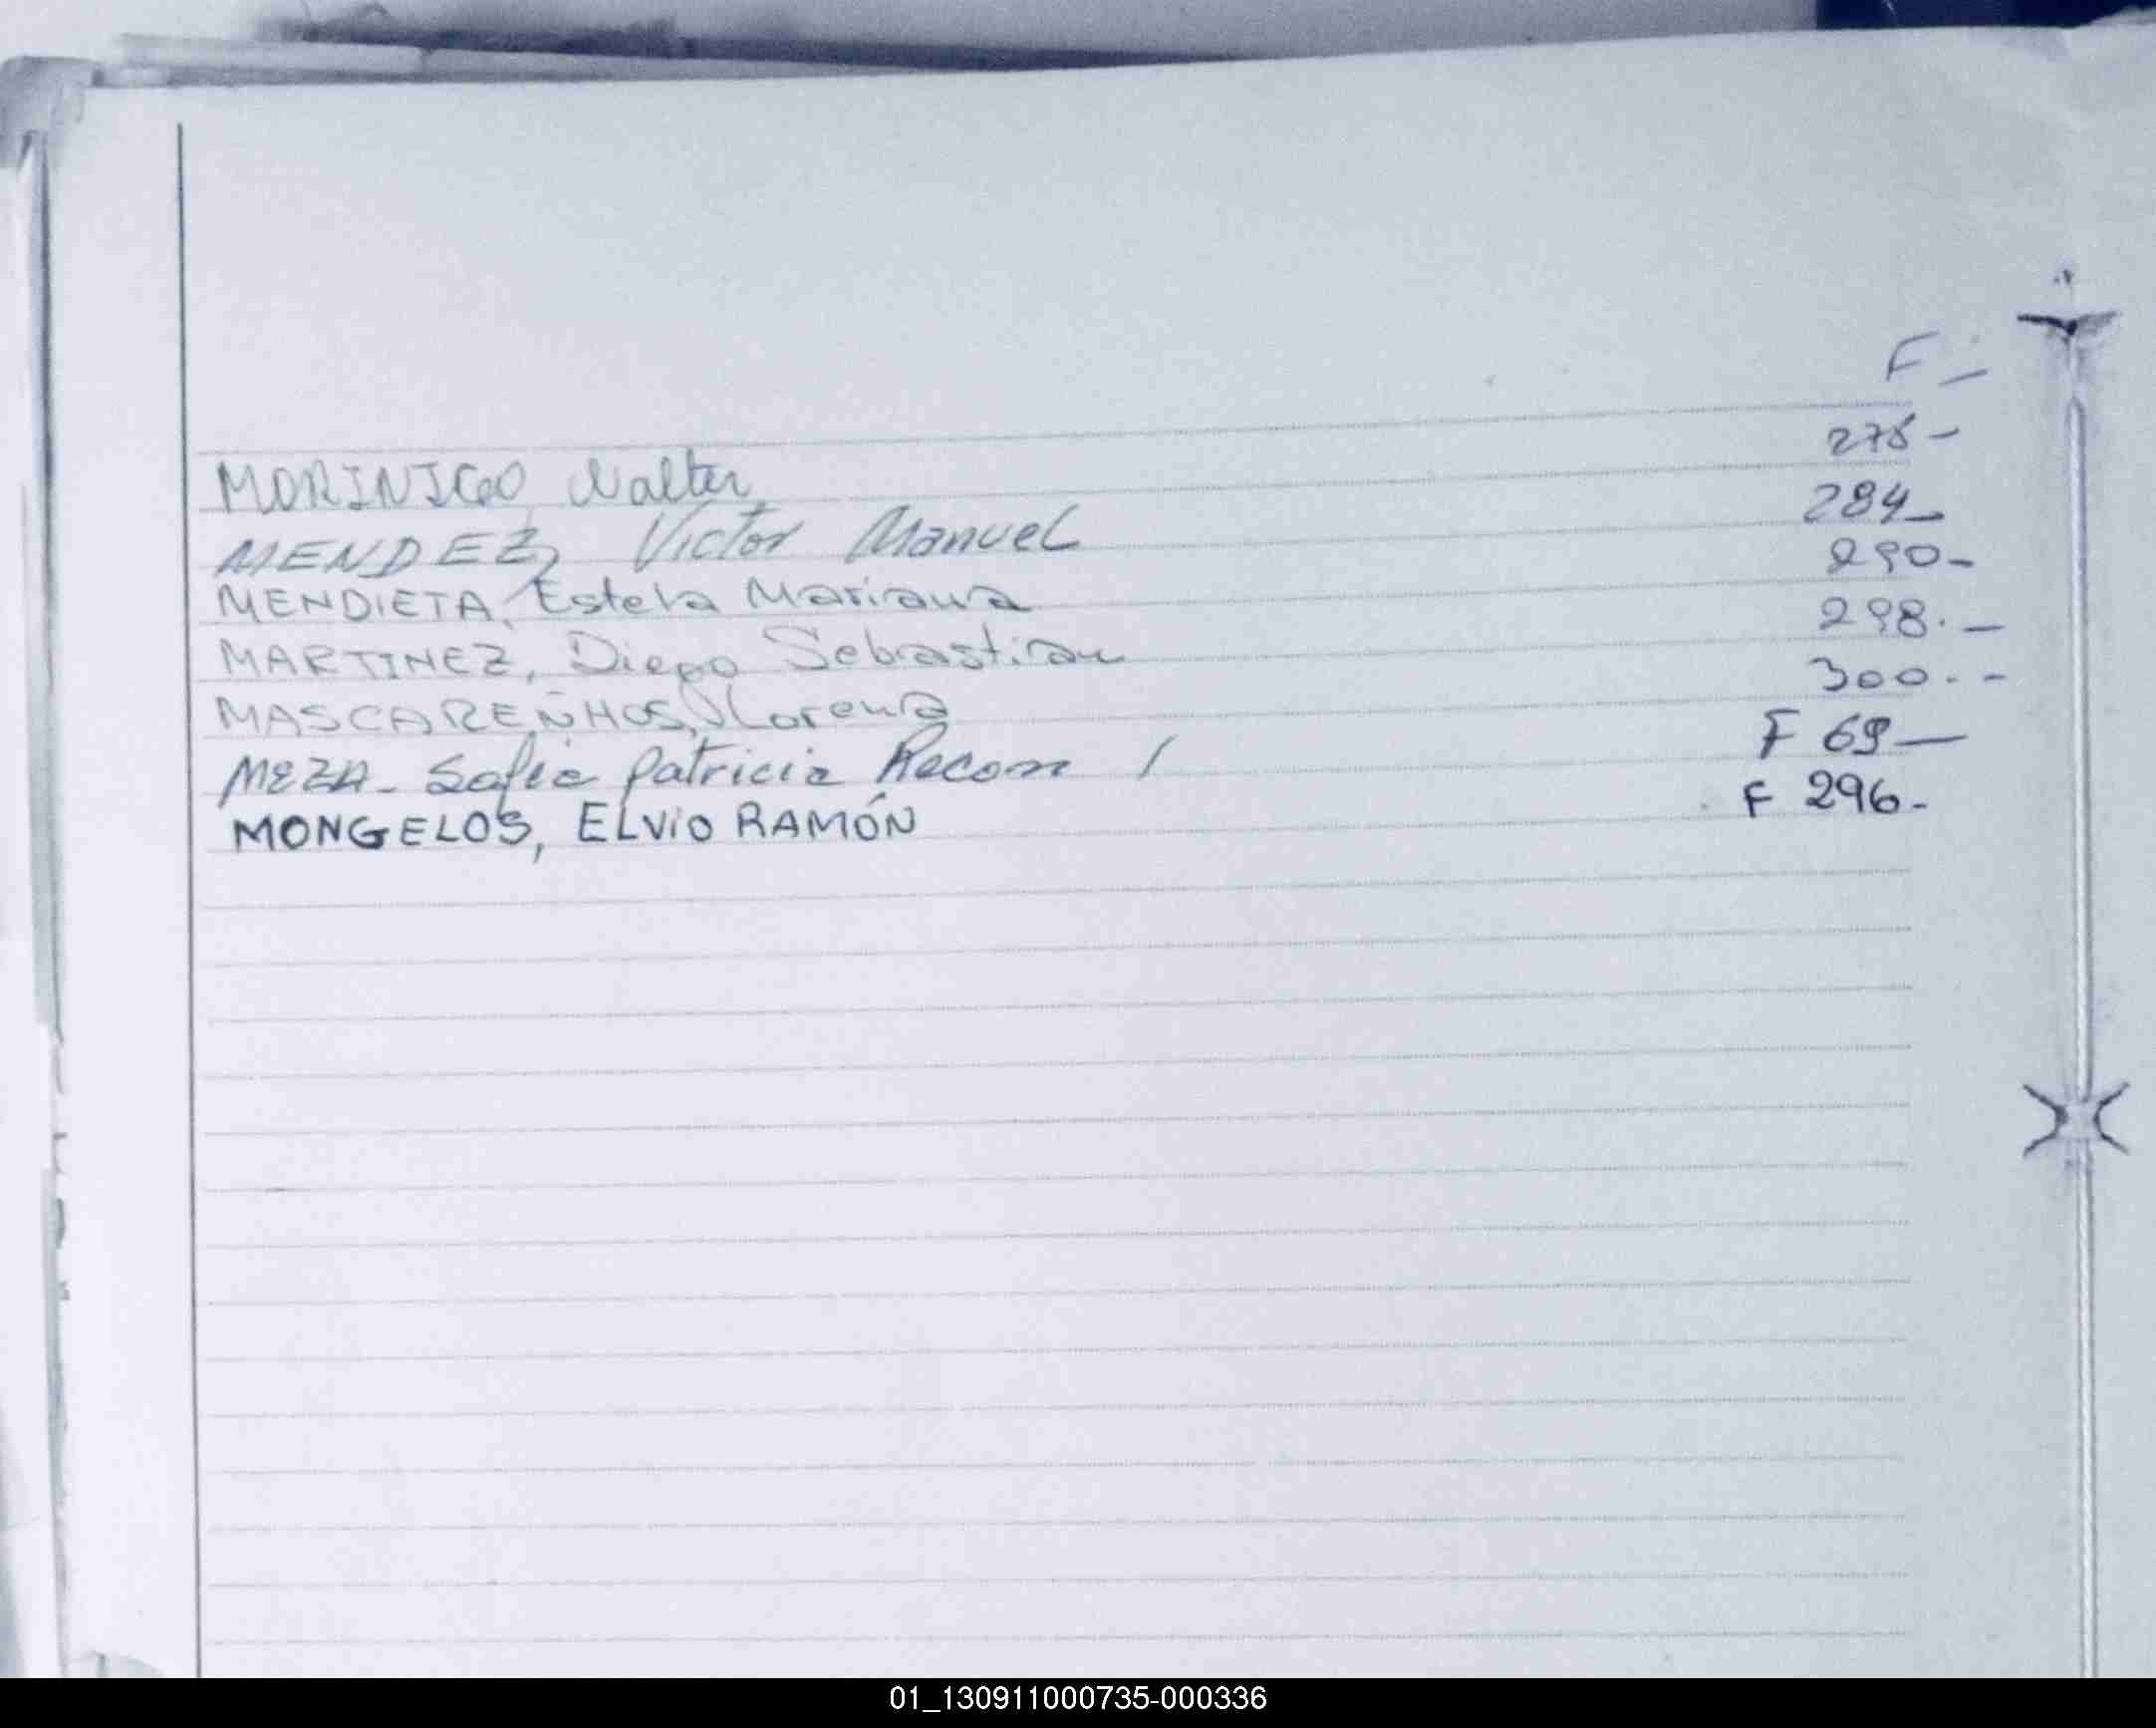 F –
MORINIGO, Walter 275 –
MENDEZ, Victor Manuel 284 –
MENDIETA, Estela Mariana 290 –
MARTINEZ, Diego Sebastian 298. –
MASCAREÑHOS, Lorena 300. –
MEZA – Sofia Patricia Recon / F 69 –
MONGELOS, ELVIO RAMÓN F 296 –
01_130911000735-000336